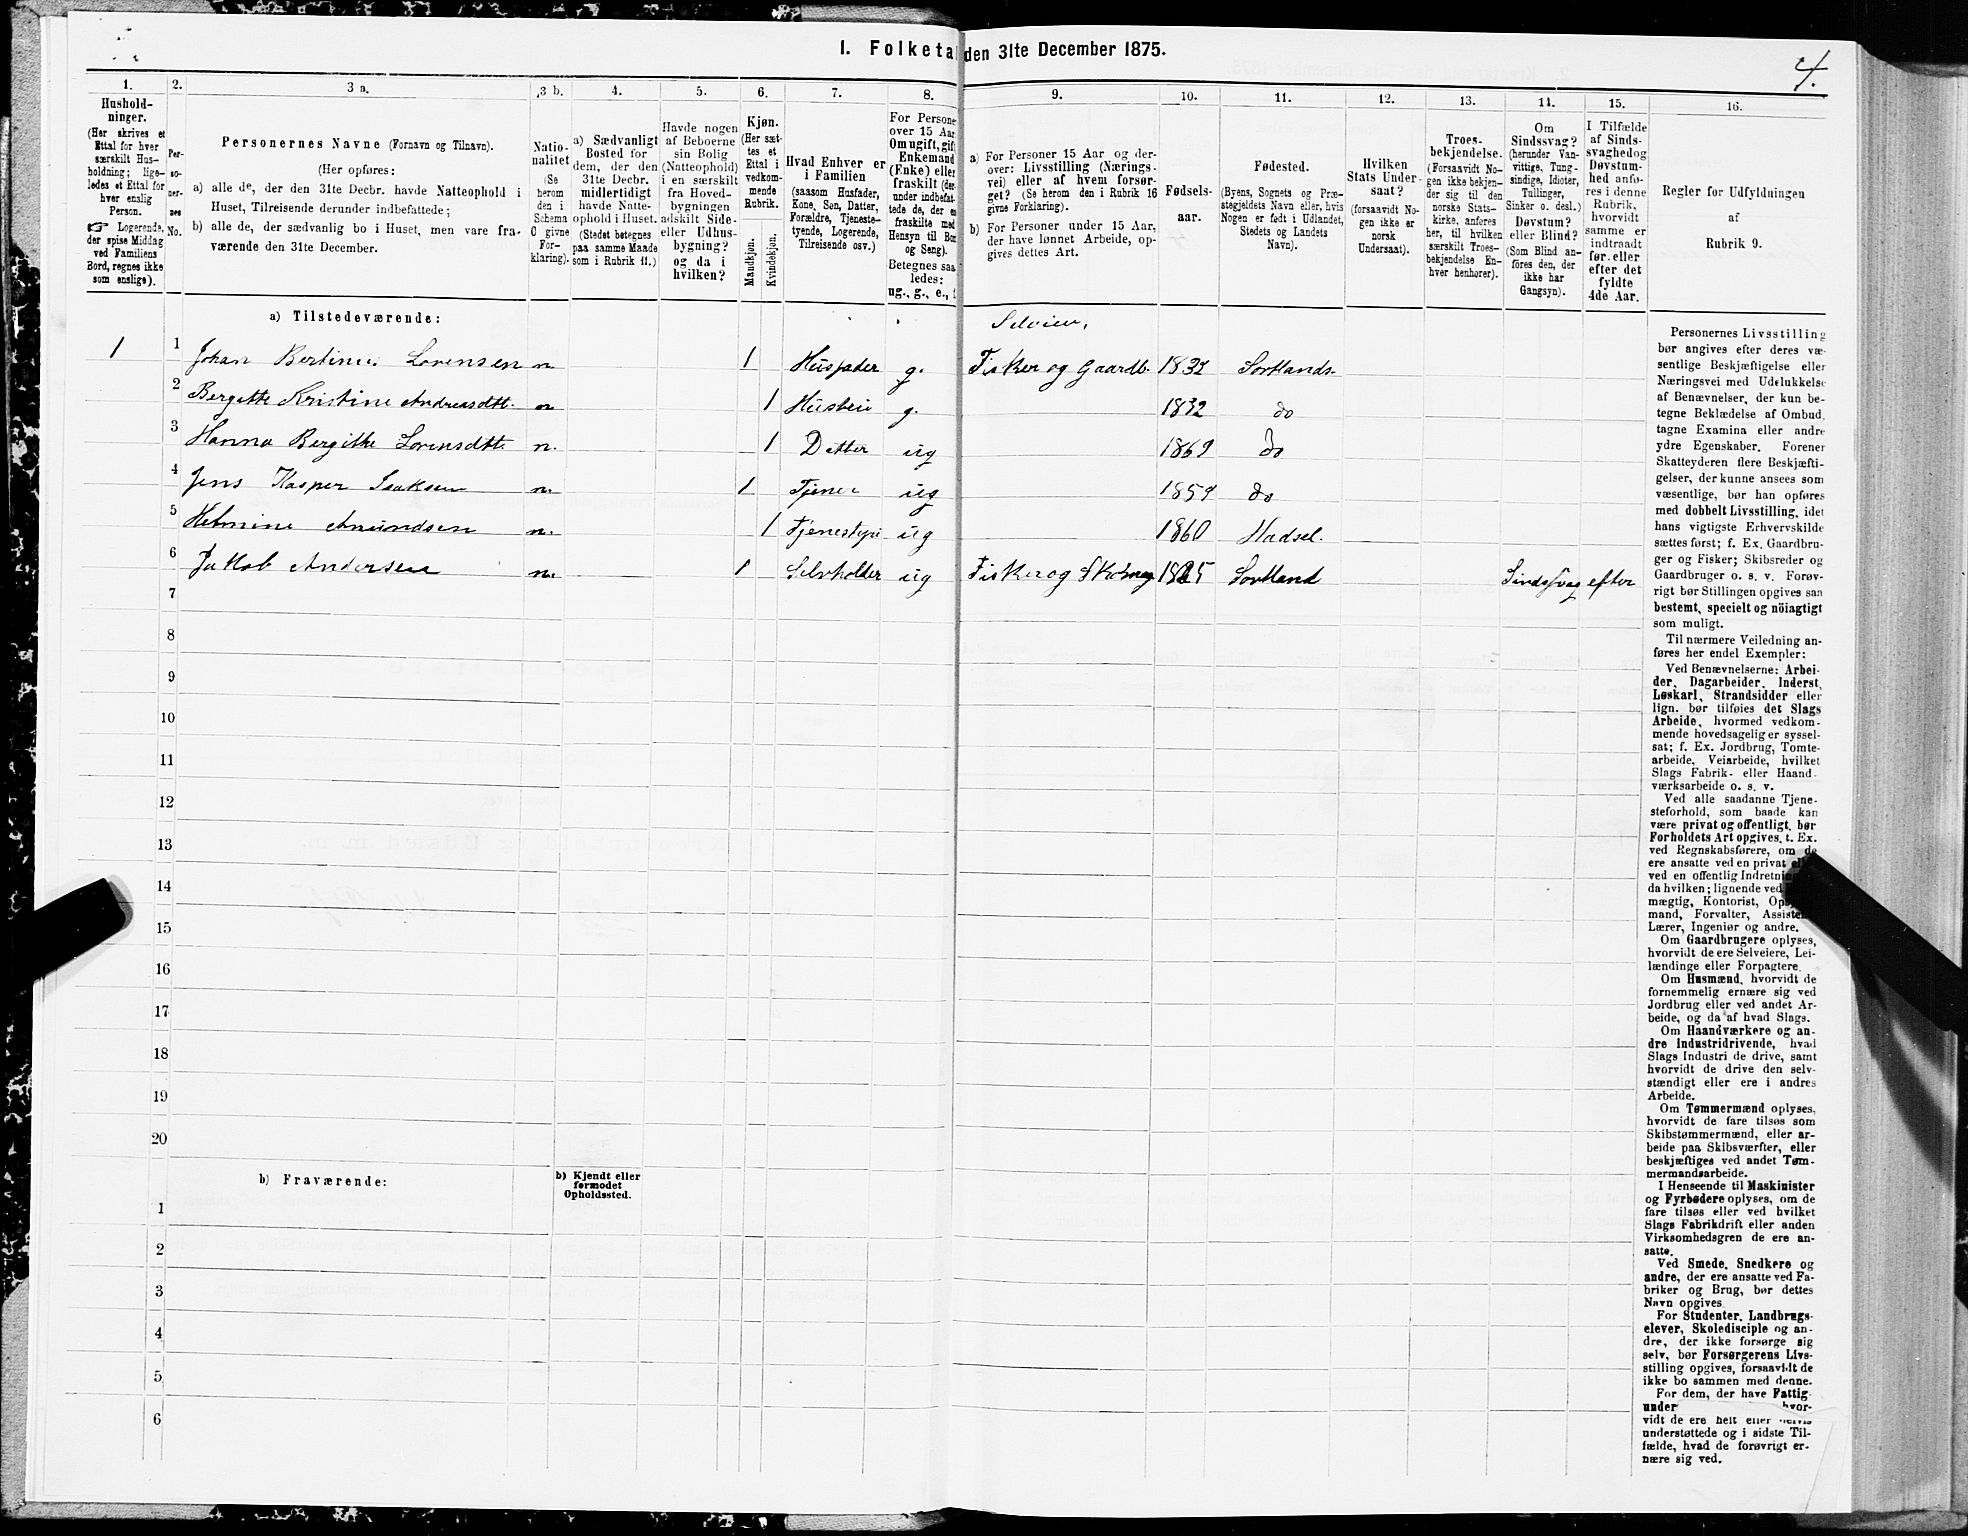 I. Folketal den 31te December 1875.
4.
1.
Hushold-
ninger.
(Her skrives et
Ettal for hver
særskilt Hus-
holdning; lige-
ledes et Ettal for
hver enslig
Person.
☞ Logerende,
der spise Middag
ved Familiens
Bord, regnes ikke
som enslige).
2.
Per-
so-
ner-
nes
No.
3 a.
Personernes Navne (Fornavn og Tilnavn).
(Her opføres:
a) alle de, der den 31te Decbr. havde Natteophold i
Huset, Tilreisende derunder indbefattede;
b) alle de, der sædvanlig bo i Huset, men vare fra-
værende den 31te December.
3 b.
Natio-
nalitet
(Se
herom
den i
Schema
C givne
For-
klaring).
4.
a) Sædvanligt
Bosted for
dem, der den
31te Decbr.
midlertidigt
havde Natte-
ophold i Huset.
(Stedet betegnes
paa samme Maade
som i Rubrik 11.)
5.
Havde nogen
af Beboerne
sin Bolig
(Natteophold)
i en særskilt
fra Hoved-
bygningen
adskilt Side-
eller Udhus-
bygning?
og da i
hvilken?
6.
Kjøn.
(Her sæt-
tes et
Ettal i
vedkom-
mende
Rubrik.
Mandkjøn.
Kvindekjøn.
7.
Hvad Enhver er
i Familien
(saasom Husfader,
Kone, Søn, Datter,
Forældre, Tjeneste-
tyende, Logerende,
Tilreisende osv.)
8.
For Persone
over 15 Aar
Om ugift, gif
Enkemand
(Enke) eller
fraskilt (der
under indbefat-
tede de, der e
fraskilte med
Hensyn til Bo
og Seng).
Betegnes saa
ledes:
ug., g., e.,
9.
a) For Personer 15 Aar og der-
over: Livsstilling (Nærings-
vei) eller af hvem forsør-
get? (Se herom den i Rubrik 16
givne Forklaring).
b) For Personer under 15 Aar,
der have lønnet Arbeide, op-
gives dettes Art.
10.
Fødsels-
aar.
11.
Fødested.
(Byens, Sognets og Præ-
stegjeldets Navn eller, hvis
Nogen er født i Udlandet,
Stedets og Landets
Navn).
12.
Hvilken
Stats Under-
saat?
(forsaavidt No-
gen ikke er
norsk
Undersaat).
13.
Troes-
bekjendelse.
(Forsaavidt No-
gen ikke bekjen-
der sig til den
norske Stats-
kirke, anføres
her, til hvilken
særskilt Troes-
bekjendelse En-
hver henhører).
14.
Om
Sindssvag?
(herunder Van-
vittige, Tung-
sindige, Idioter,
Tullinger,
Sinker o. desl.)
Døvstum?
eller Blind?
(Som Blind an-
føres den, der
ikke har
Gangsyn).
15.
I Tilfælde
af Sinds-
svaghed og
Døvstum-
hed anfø-
res i denne
Rubrik,
hvorvidt
samme er
indtraadt
før eller
efter det
fyldte
4de Aar.
16.
Regler for Udfyldningen
af
Rubrik 9.
a) Tilstedeværende:
Selveier,
1 1 Johan Bertines Lorensen n. 1 Husfader g. Fisker og Gaardb. 1832 Sortlands.
2 Bergitte Kristine Andreasdtt. n 1 Husbeie g. 1832 do
3 Hanna Bergitte Lorensdtt n. 1 Datter ug 1869 do
4 Jens Kasper Isaksen n. 1 Tjener ug 1859 do
5 Helmine Amundsen n. 1 Tjenestepi ug 1860 Hadsel.
6 Jakob Andersen n. 1 Selvholder ug Fisker og Skomag 1825 Sortland Sindssvag efter
7
8
9
10
11
12
13
14
15
16
17
18
19
20
b) Fraværende:
b) Kjendt eller
formodet
Opholdssted.
1
2
3
4
5
6
Personernes Livsstilling
bør angives efter deres væ-
sentlige Beskjæftigelse eller
Næringsvei med Udelukkelse
af Benævnelser, der kun be-
tegne Beklædelse af Ombud,
tagne Examina eller andre
ydre Egenskaber. Forener
Skatteyderen flere Beskjæfti-
gelser, der kunne ansees som
væsentlige, bør han opføres
med dobbelt Livsstilling, idet
hans vigtigste Erhvervskilde
sættes først; f. Ex. Gaardbru-
ger og Fisker; Skibsreder og
Gaardbruger o. s. v. Forøv-
rigt bør Stillingen opgives saa
bestemt, specielt og nöiagtigt
som muligt.
Til nærmere Veiledning an-
føres her endel Exempler:
Ved Benævnelserne: Arbei-
der, Dagarbeider, Inderst,
Løskarl, Strandsidder eller
lign. bør tilføies det Slags
Arbeide, hvormed vedkom-
mende hovedsagelig er syssel-
sat; f. Ex. Jordbrug, Tomte-
arbeide, Veiarbeide, hvilket
Slags Fabrik- eller Haand-
værksarbeide o. s. v.
Ved alle saadanne Tjene-
steforhold, som baade kan
være privat og offentligt, bør
Forholdets Art opgives, t. Ex.
ved Regnskabsførere, om de
ere ansatte ved en privat eller
ved en offentlig Indretning
da hvilken; lignende ved
mægtig, Kontorist, Op
mand, Forvalter, Assisten
Lærer, Ingeniør og andre.
Om Gaardbrugere oplyses,
hvorvidt de ere Selveiere, Lei-
lændinge eller Forpagtere.
Om Husmænd, hvorvidt de
fornemmelig ernære sig ved
Jordbrug eller ved andet Ar-
beide, og da af hvad Slags.
Om Haandværkere og an-
dre Industridrivende, hvad
Slags Industri de drive, samt
hvorvidt de drive den selv-
stændigt eller ere i andres
Arbeide.
Om Tømmermænd oplyses,
hvorvidt de fare tilsøs som
Skibstømmermænd, eller ar-
beide paa Skibsværfter, eller
beskjæftiges ved andet Tøm-
mermandsarbeide.
I Henseende til Maskinister
og Fyrbødere oplyses, om de
fare tilsøs eller ved hvilket
Slags Fabrikdrift eller anden
Virksomhedsgren de ere an-
satte.
Ved Smede, Snedkere og
andre, der ere ansatte ved Fa-
briker og Brug, bør dettes
Navn opgives.
For Studenter, Landbrugs-
elever, Skoledisciple og an-
dre, der ikke forsørge sig
selv, bør Forsørgerens Livs-
stilling opgives, forsaavidt de
ikke bo sammen med denne.
For dem, der have Fattig-
under hvor-
vidt de ere helt eller delvis
understøttede og i sidste Til-
fælde, hvad de forøvrigt er-
nære sig ved.